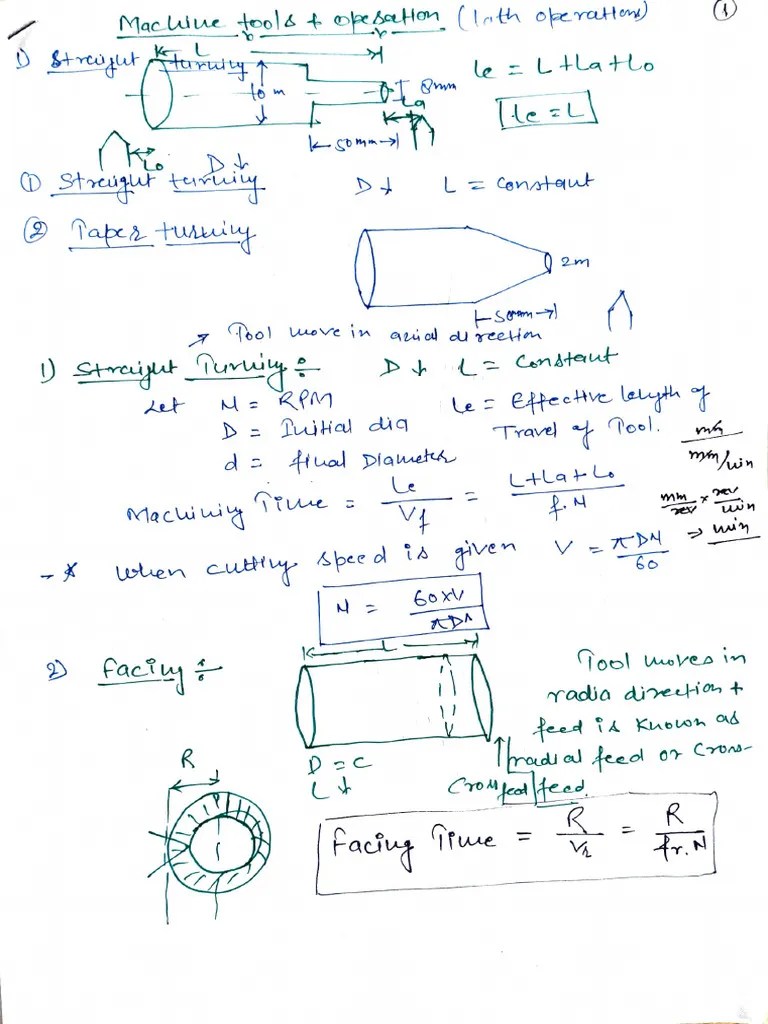 Machine tools + operation (Lath operations)
1
1) Straight turning
L
10 m
8mm
La
50mm
Lo
D↓
le = L+La+Lo
le = L
① Straight turning D↓ L = constant
② Taper turning
2m
50mm
→ Tool move in axial direction
1) Straight Turning ÷ D↓ L = Constant
Let N = RPM le = Effective length of
D = Initial dia Travel of Tool.
d = final Diameter
mm
mm/min
Machining Time = Le/Vf = L+La+Lo/f.N
mm/rev × rev/min
⇒ min
-* When cutting speed is given V = πDN/60
N = 60×V/πD
2) Facing ÷
L
Tool moves in
radia direction +
feed is known as
radial feed or Cross-
feed.
Cross feed
D = C
L↓
R
Facing Time = R/Vr = R/fr.N